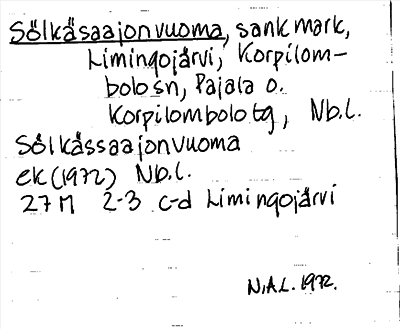 Sölkäsaajonvuoma, sankmark,
Limingojärvi, Korpilom-
bolo sn, Pajala o.
Korpilombolo tg, Nb.l.
Sölkässaajonvuoma
ek (1972) Nb.l.
27 M 2-3 c-d Limingojärvi
N.A.L. 1972.